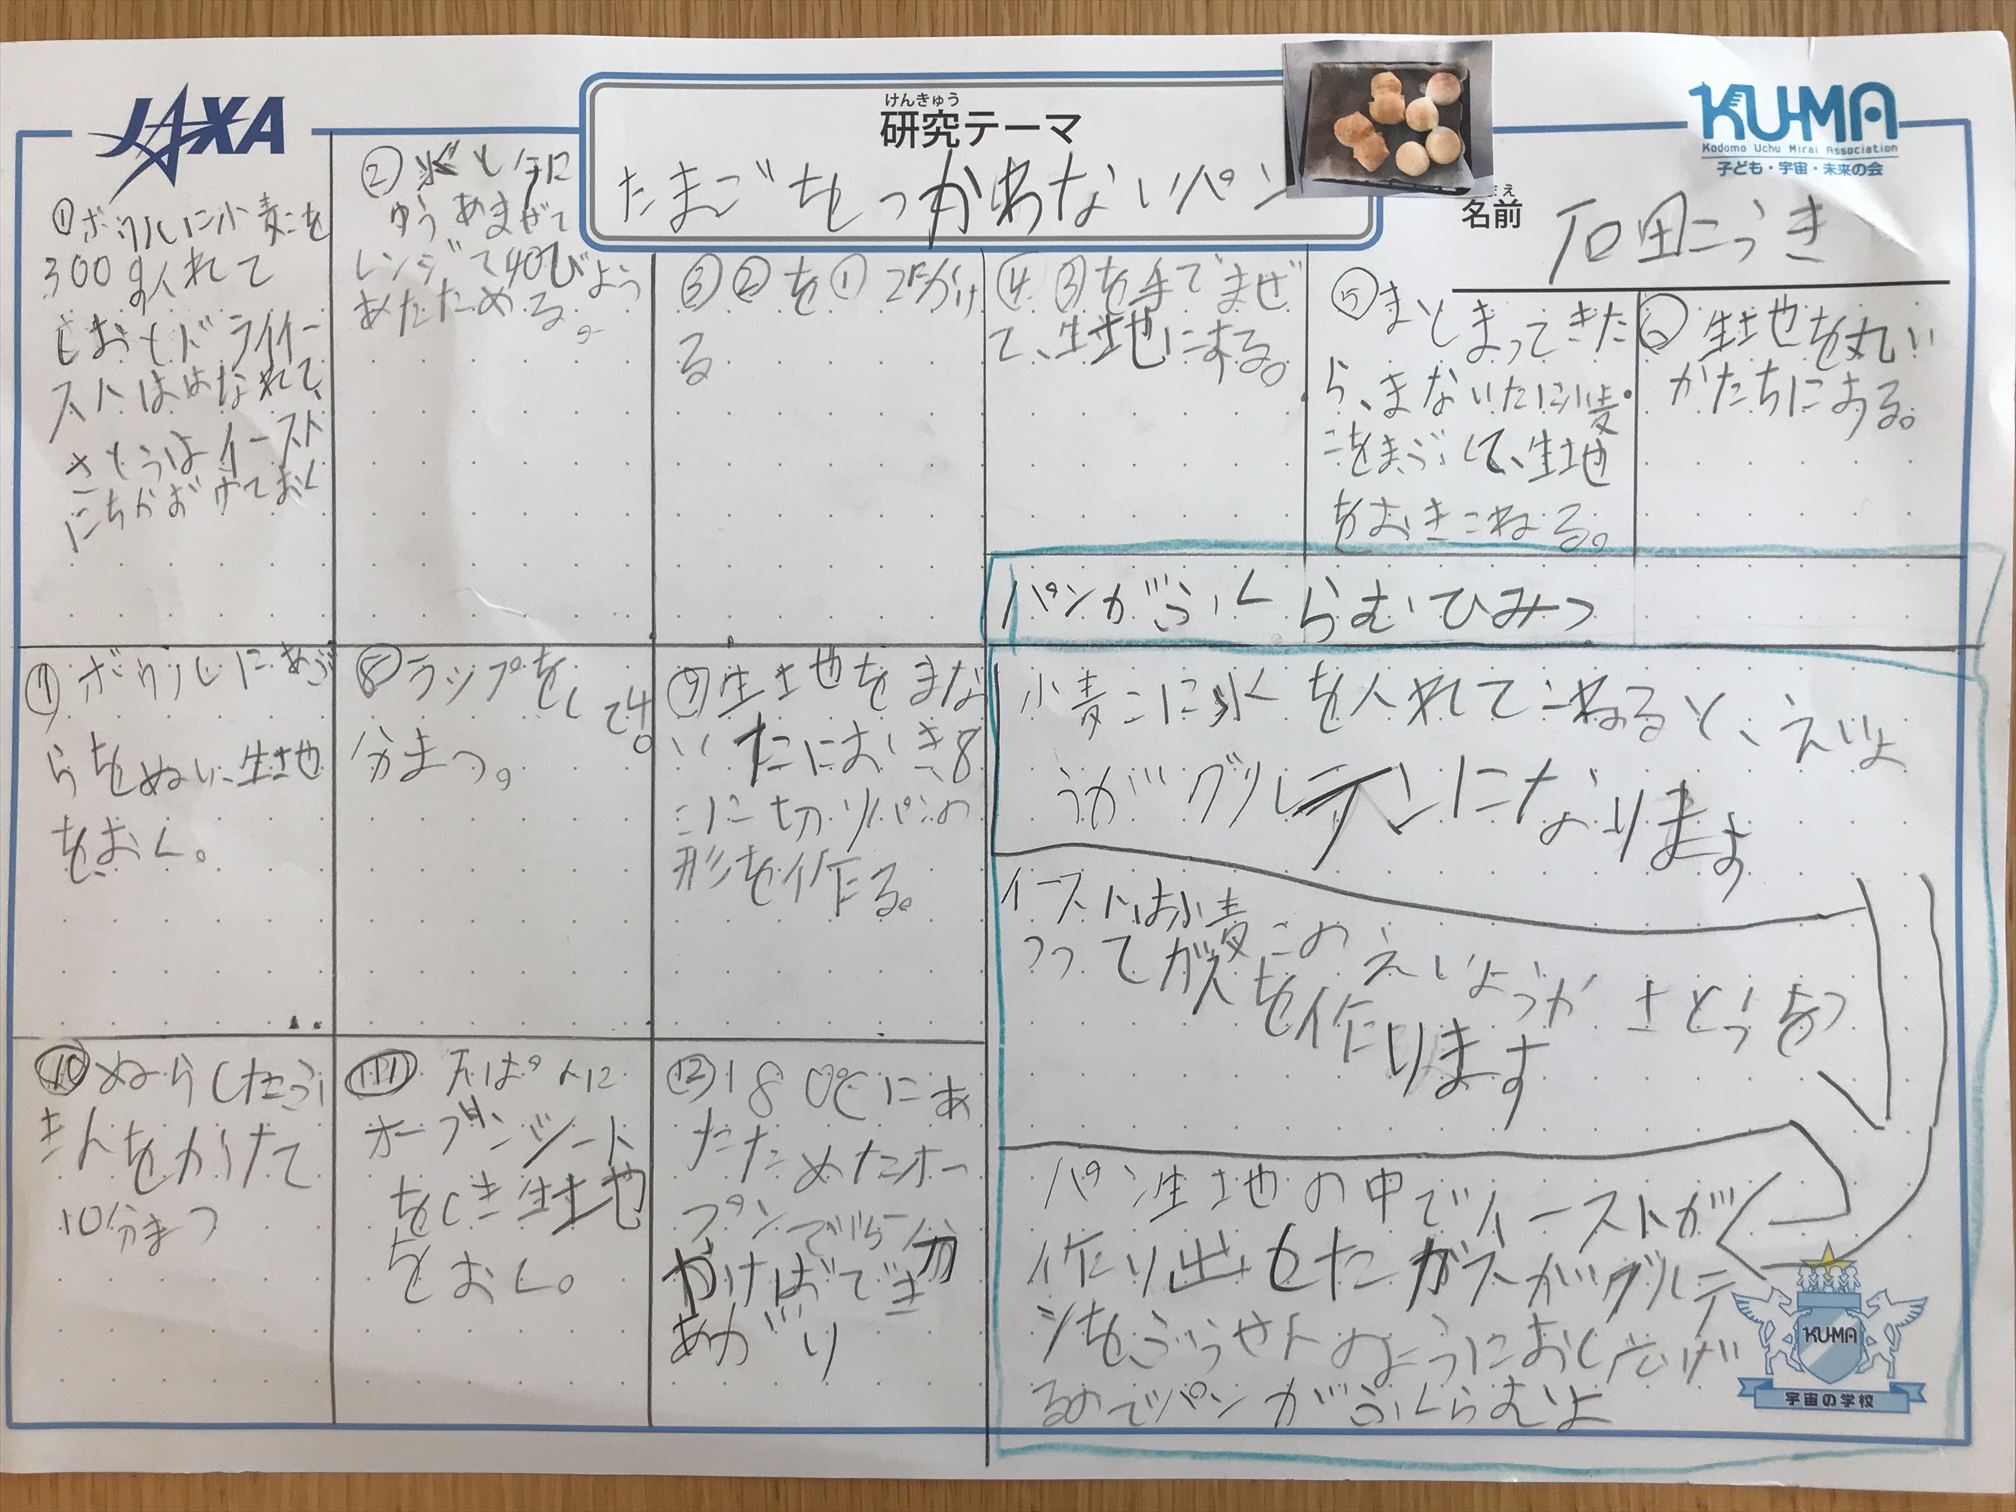 JAXA
けんきゅう
研究テーマ
たまごをつかわないパン
KU-MA
Kodomo Uchu Mirai Association
子ども・宇宙・未来の会
まえ
名前
石田こうき
①ボウルに小麦こを
300gいれて
しおとドライイー
ストははなれて、
さとうはイースト
にちかおけておく
②水と牛に
ゆうあまぜて
レンジで40びょう
あたためる。
③②を①でかけ
る
④③を手でまぜ
て、生地にする。
⑤まとまってきた
ら、まないたに小麦
こをまぶして、生地
をおきこねる。
⑥生地を丸い
かたちにする。
⑦ボウルにあぶ
らをぬい、生地
をおく。
⑧ラップをして40
分まつ。
⑨生地をまな
いたにおき、8
こに切りパンの
形を作る。
⑩ぬらしたふ
きんをかけて
10分まつ
⑪天ぱんに
オーブンシート
をしき生地
をおく。
⑫180℃にあ
たためたオー
ブンで15分
やけばでき
あがり
パンがふくらむひみつ
小麦こに水を入れてこねると、えいよ
うがグルテンになります
イーストは小麦このえいようかさとうをつ
かってガスを作ります
パン生地の中でイーストが
作り出したガスがグルテ
ンをふうせんのようにおし広げ
るのでパンがふくらむよ
KU-MA
宇宙の学校